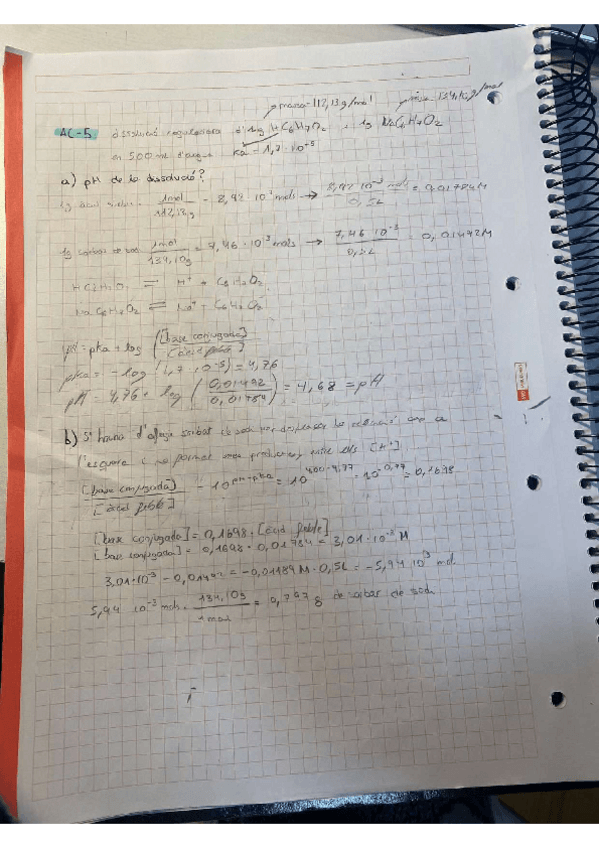 pmassa=112,13g/mol pmassa=134,10g/mol
AC-5 dissolució reguladora d'1g HC6H7O2 i 1g NaC6H7O2
en 500mL d'aigua Ka = 1,7·10⁻⁵
a) pH de la dissolució?
1g àcid 1mol/112,13g = 8,92·10⁻³ mols → 8,92·10⁻³ mols/0,5L = 0,01784M
1g sorbat de sodi 1mol/134,10g = 7,46·10⁻³ mols → 7,46·10⁻³/0,5L = 0,01492M
HC6H7O2 ⇌ H⁺ + C6H7O2⁻
NaC6H7O2 ⇌ Na⁺ + C6H7O2⁻
pH = pka + log ([base conjugada]/[àcid feble])
pka = -log (1,7·10⁻⁵) = 4,76
pH = 4,76 + log (0,01492/0,01784) = 4,68 = pH
b) S'hauria d'afegir sorbat de sodi per desplaçar la reacció cap a
l'esquerra i no format entre els [H⁺]
[base conjugada]/[àcid feble] = 10^pH-pka = 10^4,00-4,77 = 10^-0,77 = 0,1698
[base conjugada] = 0,1698·[àcid feble]
[base conjugada] = 0,1698·0,01784 = 3,01·10⁻³ M
3,01·10⁻³ - 0,01492 = -0,01189M·0,5L = -5,94·10⁻³ mol
5,94·10⁻³ mols · 134,10g/1mol = 0,797 g de sorbat de sodi